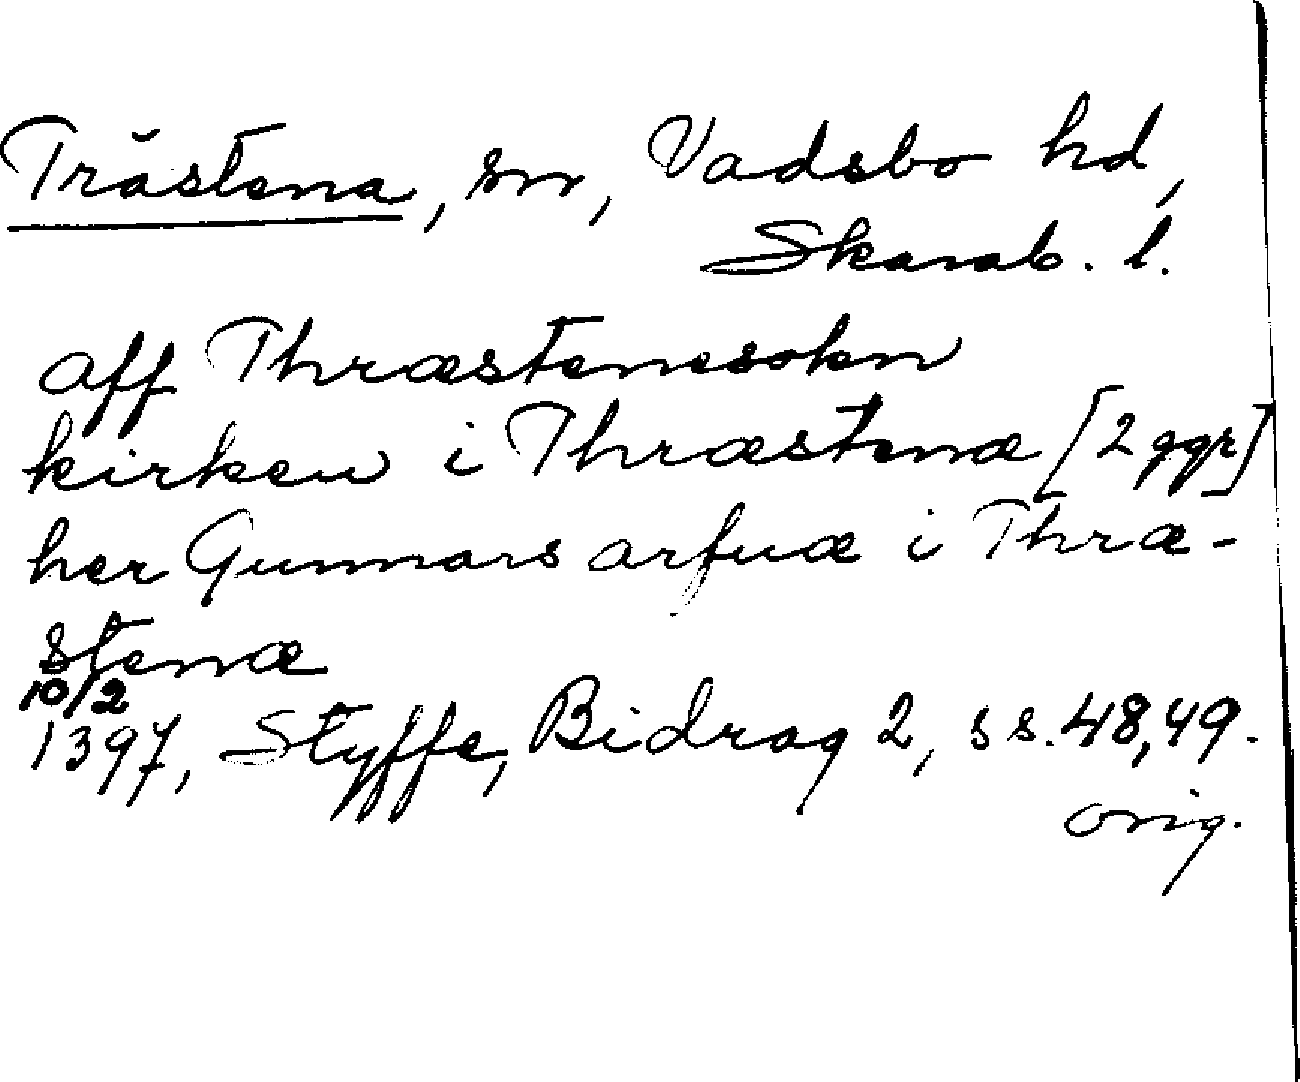 Trästena, sn, Vadsbo hd,
Skarab. l.
aff Thræstenesokn
kirken i Thræstenæ [2 ggr]
her Gunnars arfuæ i Thræ-
stenæ
10/2
1397, Styffe, Bidrag 2, ss. 48,49.
orig.